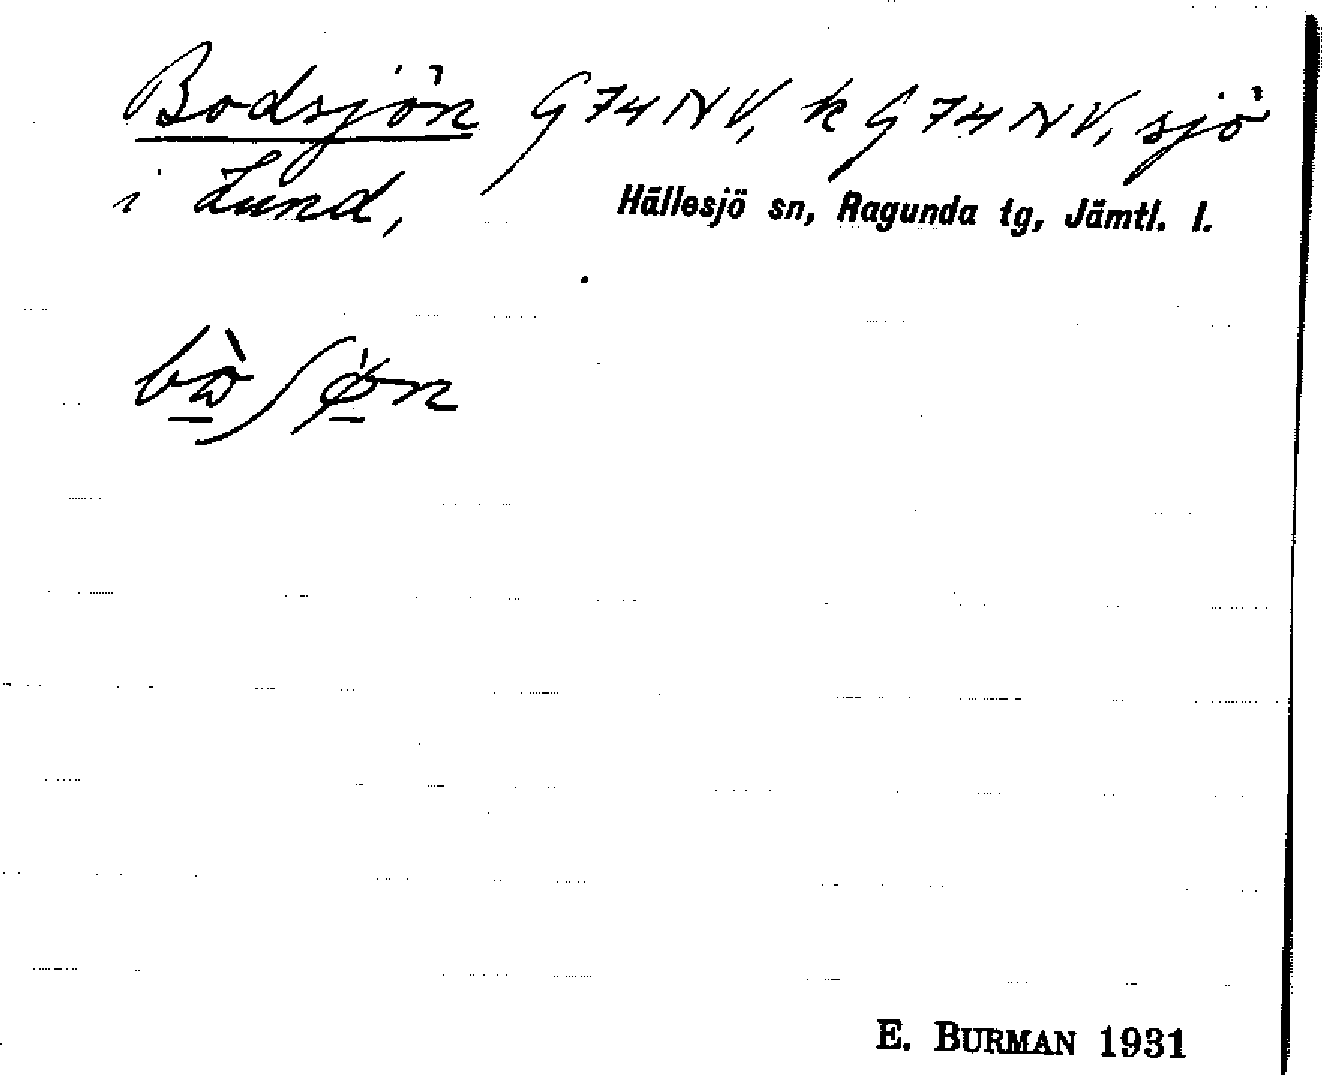 Bodsjön G 74 NV, k G 74 NV, sjö
i Lund, Hällesjö sn, Ragunda tg, Jämtl. l.
E. BURMAN 1931